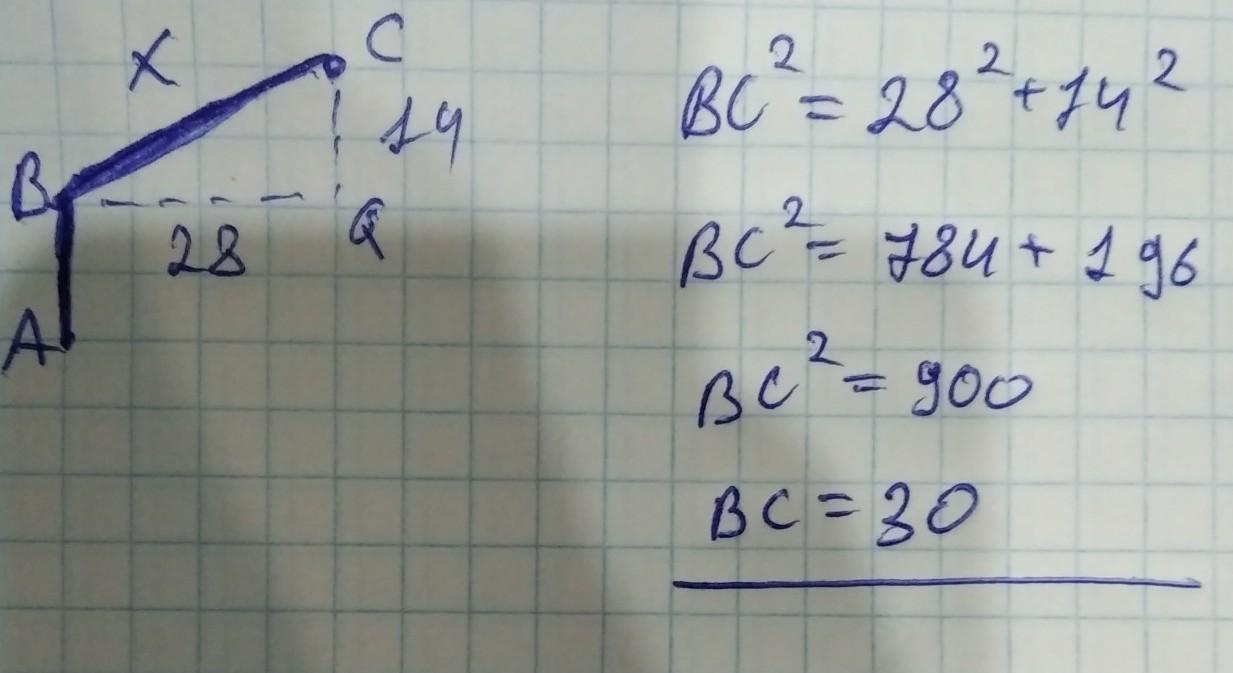 X
C
14
B
28
Q
A
BC² = 28² + 14²
BC² = 784 + 196
BC² = 900
BC = 30